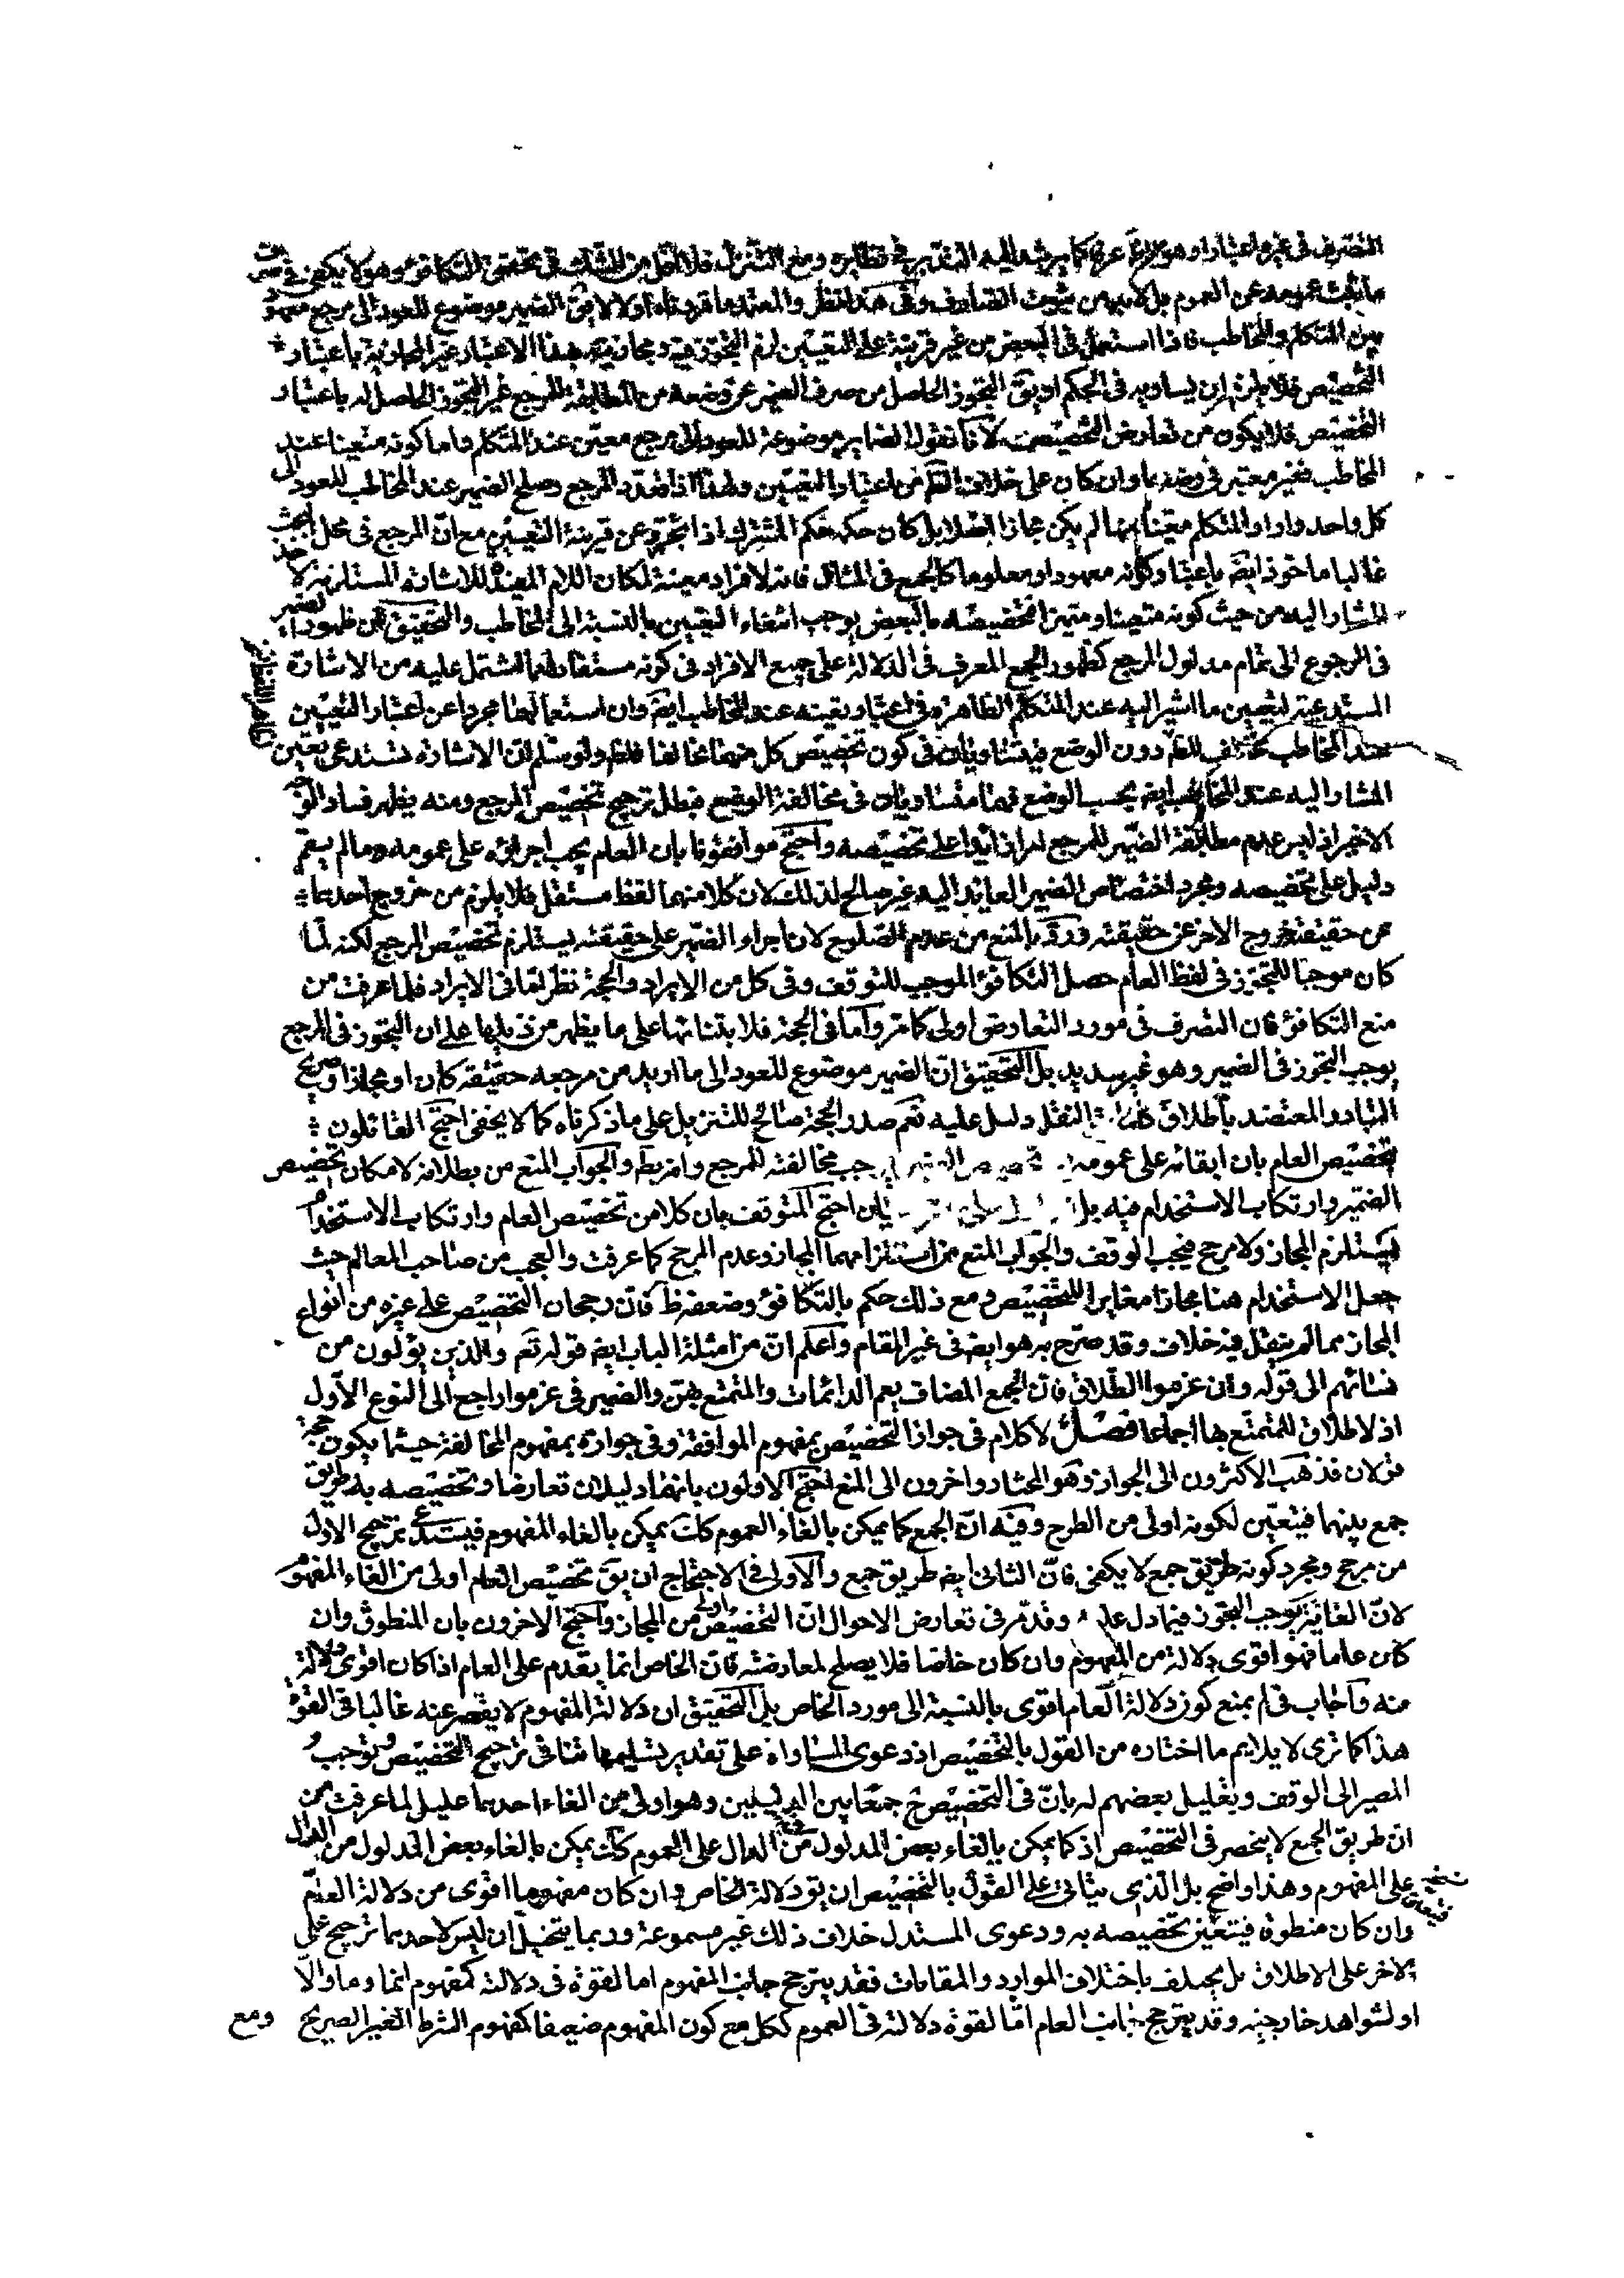 التصرف في غيره اعتبارا وهو عرفا كما يرشد اليه التقدير في نظايره ومع التنزل فلا اقل من الشك في تحقق التكافؤ وهو لا يكفي في صرف
ما ثبت عمومه عن العموم بل لا بد من ثبوت الصارف وفي هذا نظر والمعتمد ما قررناه اولا لا يق الضمير موضوع للعود الى مرجع معهود
بين المتكلم والمخاطب فاذا استعمل في البعض من غير قرينة على التعيين لزم التجوز فيه ومجازيته بهذا الاعتبار غير المجازية باعتبار
التخصيص فلا يلزم ان يساويه في الحكم او يق التجوز الحاصل من صرف الضمير عن وضعه من المطابقة للمرجع غير التجوز الحاصل له باعتبار
التخصيص فلا يكون من تعارض التخصيصين لانا نقول الضماير موضوعة للعود الى مرجع معين عند المتكلم واما كونه متعينا عند
المخاطب فغير معتبر في وضعها وان كان على خلاف الظم من اعتبار التعيين ولهذا اذا تعدد المرجع وصلح الضمير عند المخاطب للعود الى
كل واحد واراد المتكلم معينا منها لم يكن مجازا اصلا بل كان حكمه حكم المشترك اذا تجرد عن قرينة التعيين مع ان المرجع في محل البحث
غالبا ماخوذ ايضا باعتبار كونه معهودا ومعلوما كالجمع في المثال فانه لافراد معينة لمكان اللام المفيدة للاشارة المستلزمة لاخذ
المشار اليه من حيث كونه متعينا ومتميزا فتخصيصه بالبعض يوجب انتفاء التعيين بالنسبة الى المخاطب والتحقيق ان ظهور الضمير
في الرجوع الى تمام مدلول المرجع كظهور الجمع المعرف في الدلالة على جميع الافراد في كونه مستفادا مما اشتمل عليه من الاشارة
المستدعية لتعيين ما اشير اليه عند المتكلم الظاهرة في اعتبار تعينه عند المخاطب ايضا وان استعمالها مجردا عن اعتبار التعيين
عند المخاطب مخالف للظم دون الوضع فيتساويان في كون تخصيص كل منهما مخالفا للظم ولو سلم ان الاشارة تستدعي تعين
المشار اليه عند المخاطب ايضا بحسب الوضع فهما متساويان في مخالفة الوضع فبطل ترجيح تخصيص المرجع ومنه يظهر فساد الوجه
الاخير اذ ليس عدم مطابقة الضمير للمرجع امرا زائدا على تخصيصه واحتج موافقونا بان العام يجب اجراؤه على عمومه ما لم يقم
دليل على تخصيصه ومجرد اختصاص الضمير العايد اليه غير صالح لذلك لان كلا منهما لفظ مستقل فلا يلزم من خروج احدهما
عن حقيقته خروج الاخر عن حقيقته ورد بالمنع من عدم الصلوح لان اجراء الضمير على حقيقته يستلزم تخصيص المرجع لكنه لما
كان موجبا للتجوز في لفظ العام حصل التكافؤ الموجب للتوقف وفي كل من الايراد والحجة نظر اما في الايراد فلما عرفت من
منع التكافؤ فان التصرف في مورد التعارض اولى كما مر واما في الحجة فلابتنائها على ما يظهر من ذيلها على ان التجوز في المرجع
يوجب التجوز في الضمير وهو غير سديد بل التحقيق ان الضمير موضوع للعود الى ما اريد من مرجعه حقيقة كان او مجازا وصريح
التبادر المعتضد باطلاق النقل دليل عليه نعم صدر الحجة صالح للتنزيل على ما ذكرناه كما لا يخفى احتج القائلون
بتخصيص العام بان ابقائه على عمومه يوجب مخالفته للمرجع وانه بط والجواب المنع من بطلانه لامكان تخصيص
الضمير وارتكاب الاستخدام فيه بل احتج المتوقف بان كلا من تخصيص العام وارتكاب الاستخدام
يستلزم المجاز ولا مرجح فيجب الوقف والجواب المنع من استلزامهما المجاز وعدم المرجح كما عرفت والعجب من صاحب المعالم حيث
جعل الاستخدام هنا مجازا مغايرا للتخصيص ومع ذلك حكم بالتكافؤ وضعفه ظ فان رجحان التخصيص على غيره من انواع
المجاز مما لم ينقل فيه خلاف وقد صرح به هو ايضا في غير المقام واعلم ان من امثلة الباب ايضا قوله تعم والذين يؤلون من
نسائهم الى قوله وان عزموا الطلاق فان الجمع المضاف يعم الدائمات والمتمتع بهن والضمير في عزموا راجع الى النوع الاول
اذ لا طلاق للمتمتع بها اجماعا فصل لا كلام في جواز التخصيص بمفهوم الموافقة وفي جوازه بمفهوم المخالفة حيثما يكون حجة
قولان فذهب الاكثرون الى الجواز وهو المختار واخرون الى المنع احتج الاولون بانهما دليلان تعارضا وتخصيصه به طريق
جمع بينهما فيتعين لكونه اولى من الطرح وفيه ان الجمع كما يمكن بالغاء العموم كك يمكن بالغاء المفهوم فيستدعي ترجيح الاول
من مرجح ومجرد كونه طريق جمع لا يكفي فان الثاني ايضا طريق جمع والاولى في الاحتجاج ان يق تخصيص العام اولى من الغاء المفهوم
لان الغائه يوجب التجوز فيما دل عليه وقد مر في تعارض الاحوال ان التخصيص اولى من المجاز واحتج الاخرون بان المنطوق وان
كان عاما فهو اقوى دلالة من المفهوم وان كان خاصا فلا يصلح لمعارضته فان الخاص انما يقدم على العام اذا كان اقوى دلالة
منه واجاب في لم بمنع كون دلالة العام اقوى بالنسبة الى مورد الخاص بل التحقيق ان دلالة المفهوم لا يقصر عنه غالبا في القوة
هذا كما ترى لا يلايم ما اختاره من القول بالتخصيص اذ دعوى المساواة على تقدير تسليمها تنافي ترجيح التخصيص وتوجب
المصير الى الوقف وتعليل بعضهم له بان في التخصيص ح جمعا بين الدليلين وهو اولى من الغاء احدهما عليل لما عرفت من
ان طريق الجمع لا ينحصر في التخصيص اذ كما يمكن بالغاء بعض المدلول من الدال على العموم كك يمكن بالغاء بعض المدلول من الدال
على المفهوم وهذا واضح بل الذي يتاتى على القول بالتخصيص ان يق دلالة الخاص وان كان مفهوما اقوى من دلالة العام
وان كان منطوقه فيتعين تخصيصه به ودعوى المستدل خلاف ذلك غير مسموعة وربما يتخيل ان ليس لاحدهما ترجيح على
الاخر على الاطلاق بل يختلف باختلاف الموارد والمقامات فقد يترجح جانب المفهوم اما لقوة في دلالته كمفهوم انما وما والا
او لشواهد خارجية وقد يترجح جانب العام اما لقوة دلالته في العموم ككل مع كون المفهوم ضعيفا كمفهوم الشرط الغير الصريح ومع